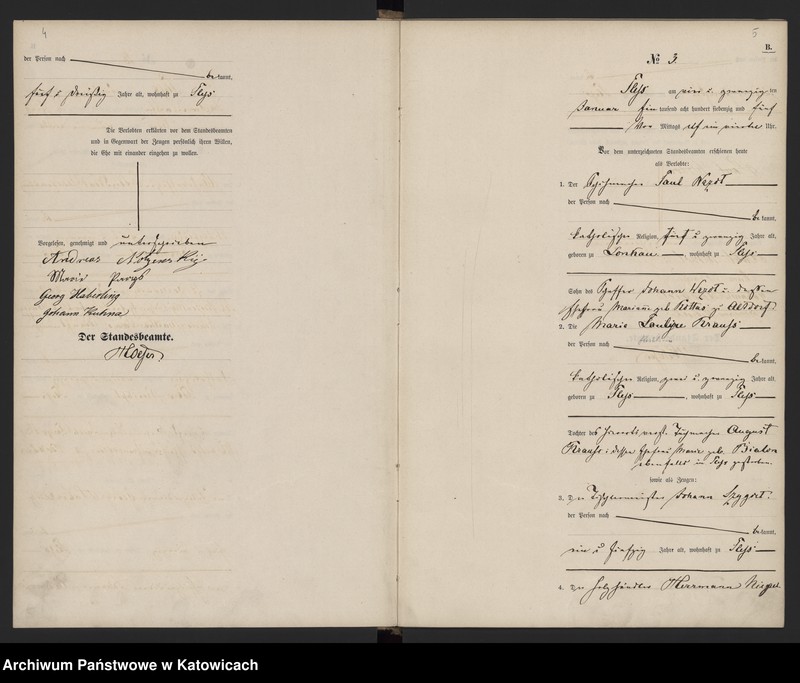 4
der Person nach
bekannt,
fünf u dreißig Jahre alt, wohnhaft zu Pleß
Die Verlobten erklärten vor dem Standesbeamten
und in Gegenwart der Zeugen persönlich ihren Willen,
die Ehe mit einander eingehen zu wollen.
Vorgelesen, genehmigt und unterschrieben
Andreas
Marie
Georg Haberling
Johann Kuhna
Der Standesbeamte.
5
B.
№ 3.
Pleß am vier u. zwanzigsten
Januar Ein tausend acht hundert siebenzig und fünf
Vor Mittags elf ein viertel Uhr.
Vor dem unterzeichneten Standesbeamten erschienen heute
als Verlobte:
1. Der Schuhmacher Paul
der Person nach
bekannt,
katholischer Religion, fünf u zwanzig Jahre alt,
geboren zu wohnhaft zu Pleß
Sohn des Johann u. dessen
Ehefrau Marianne geb. zu Altdorf
2. Die Marie Pauline Krauss
der Person nach
bekannt,
katholischer Religion, zwei u zwanzig Jahre alt,
geboren zu Pleß, wohnhaft zu Pleß
Tochter des verst. Tuchmacher August
Krauss u dessen Ehefrau Marie geb.
ebenfalls in Pleß gestorben.
sowie als Zeugen:
3. Der Tischlermeister Johann
der Person nach
bekannt,
ein u fünfzig Jahre alt, wohnhaft zu Pleß
4. Der Holzhändler Herrmann
Archiwum Państwowe w Katowicach